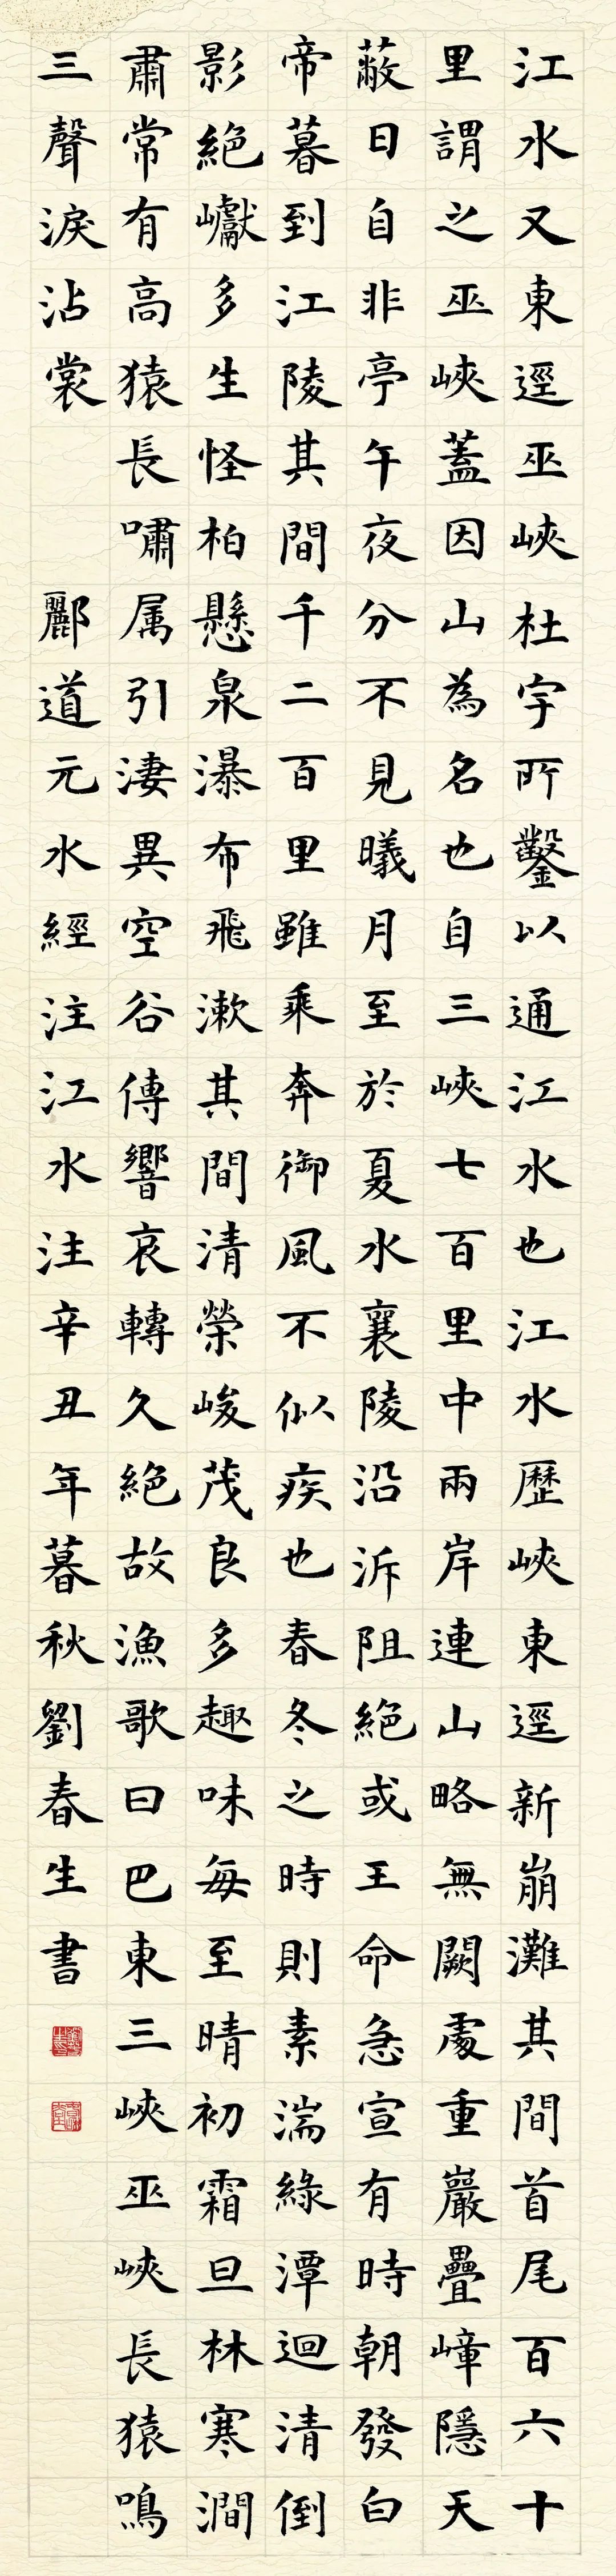 江水又東逕巫峽杜宇所鑿以通江水也江水歷峽東逕新崩灘其間首尾百六十
里謂之巫峽蓋因山為名也自三峽七百里中兩岸連山略無闕處重巖疊嶂隱天
蔽日自非亭午夜分不見曦月至於夏水襄陵沿泝阻絕或王命急宣有時朝發白
帝暮到江陵其間千二百里雖乘奔御風不似疾也春冬之時則素湍綠潭迴清倒
影絕巘多生怪柏懸泉瀑布飛漱其間清榮峻茂良多趣味每至晴初霜旦林寒澗
肅常有高猿長嘯属引淒異空谷傳響哀轉久絕故漁歌曰巴東三峽巫峽長猿鳴
三聲淚沾裳 酈道元水經注江水注辛丑年暮秋劉春生書